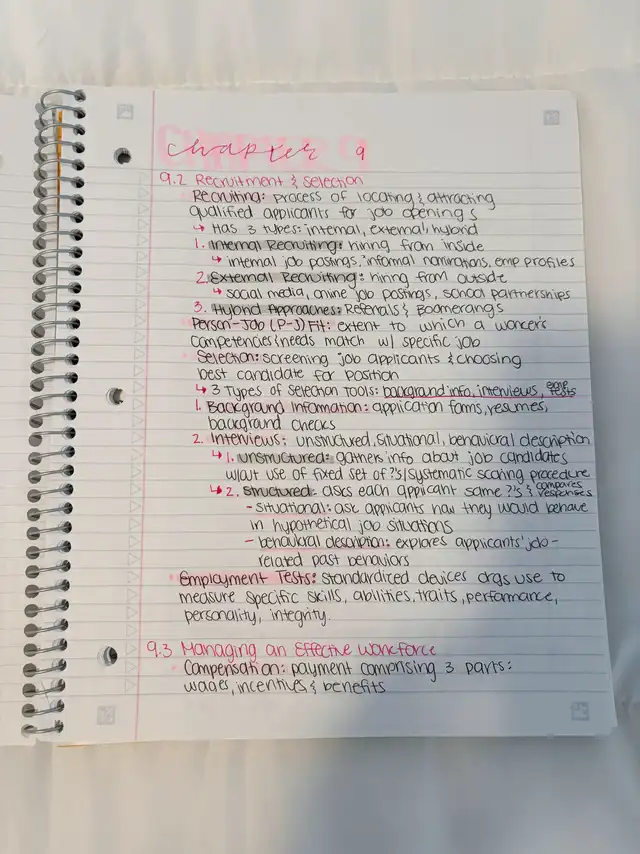 chapter 9
9.2 Recruitment & Selection
Recruiting: process of locating & attracting
qualified applicants for job openings
↳ Has 3 types: internal, external, hybrid
1. Internal Recruiting: hiring from inside
↳ internal job postings, informal nominations, emp profiles
2. External Recruiting: hiring from outside
↳ social media, online job postings, school partnerships
3. Hybrid Approaches: Referrals & Boomerangs
Person-Job (P-J) Fit: extent to which a worker's
competencies & needs match w/ specific job
Selection: screening job applicants & choosing
best candidate for position
↳ 3 Types of Selection Tools: background info, interviews, emp tests
1. Background Information: application forms, resumes,
background checks
2. Interviews: unstructured, situational, behavioral description
↳ 1. unstructured: gathers info about job candidates
w/out use of fixed set of ?'s / systematic scoring procedure
↳ 2. Structured: asks each applicant same ?'s & compares responses
- Situational: ask applicants how they would behave
in hypothetical job situations
- behavioral description: explores applicants' job-
related past behaviors
Employment Tests: standardized devices orgs use to
measure specific skills, abilities, traits, performance,
personality, integrity.
9.3 Managing an Effective Workforce
Compensation: payment comprising 3 parts:
wages, incentives & benefits